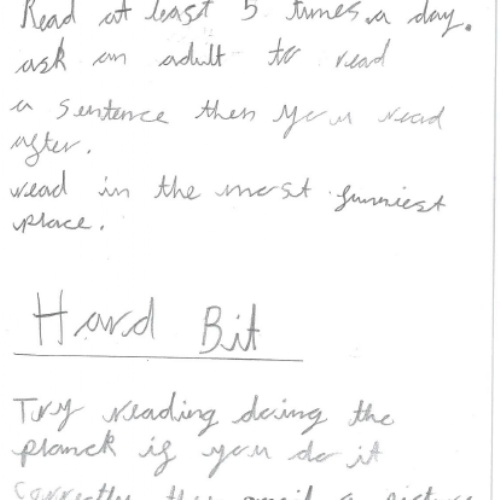 Read at least 5 times a day.
ask an adult to read
a sentence then you read
after.
read in the most funniest
place.
Hard Bit
Try reading doing the
planck if you do it
correctly then email a picture